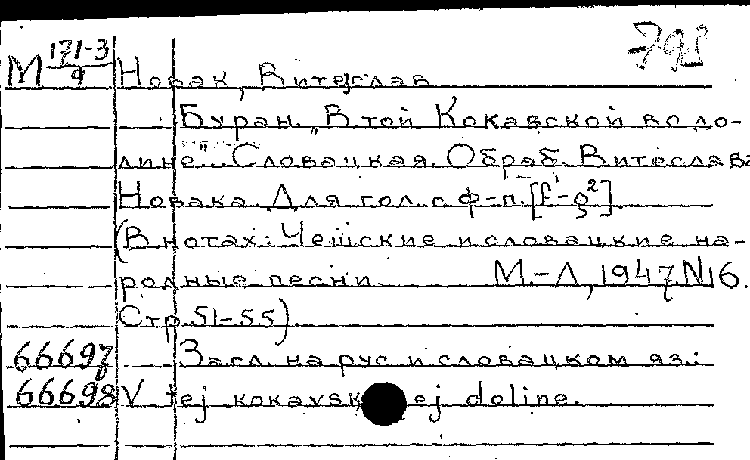 798
М 171-3/9 Новак, Витеслав
Буран. "В той Кокавской во до-
лине..." Словацкая. Обраб. Витеслава
Новака. Для гол. с ф-п. [f'-g²]
(В нотах: Чешские и словацкие на-
родные песни М.-Л., 1947. N16.
Стр. 51-55).
66697 Загл. на рус. и словацком яз.:
66698 V tej kokavsk ej doline.